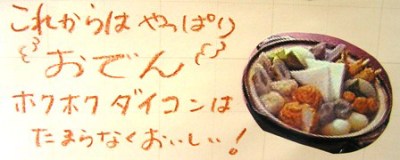 これからは やっぱり
おでん
ホクホク ダイコンは
たまらなくおいしい!